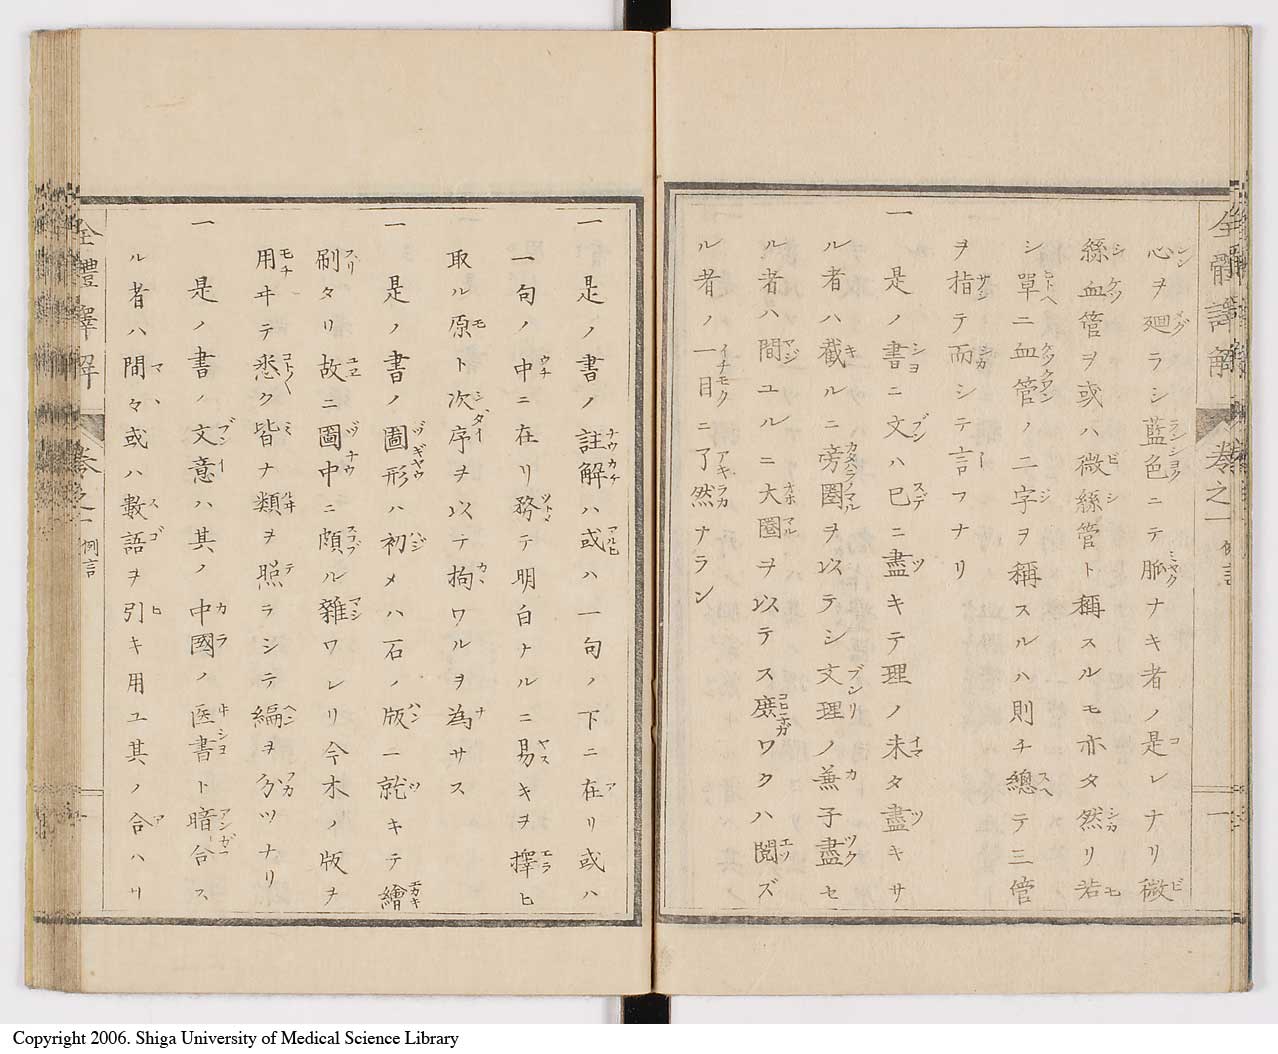 心ヲ廻ラシ藍色ニテ脈ナキ者ノ是レナリ微
絲血管ヲ或ハ微絲管ト稱スルモ亦タ然リ若
シ單ニ血管ノ二字ヲ稱スルハ則チ總テ三管
ヲ指テ而シテ言フナリ
一 是ノ書ニ文ハ已ニ盡キテ理ノ未タ盡キサ
ル者ハ截ルニ旁圏ヲ以テシ文理ノ兼子盡セ
ル者ハ間ユルニ大圏ヲ以テス庶ワクハ閲ズ
ル者ノ一目ニ了然ナラン
全體譯解 卷之一 例言 一
一 是ノ書ノ註解ハ或ハ一句ノ下ニ在リ或ハ
一句ノ中ニ在リ務テ明白ナルニ易キヲ擇ヒ
取ル原ト次序ヲ以テ拘ワルヲ為サス
一 是ノ書ノ圖形ハ初メハ石ノ版ニ就キテ繪
刷タリ故ニ圖中ニ頗ル雜ワレリ今木ノ版ヲ
用ヰテ悉ク皆ナ類ヲ照ラシテ編ヲ分ツナリ
一 是ノ書ノ文意ハ其ノ中國ノ医書ト暗合ス
ル者ハ間々或ハ數語ヲ引キ用ユ其ノ合ハサ
全體譯解 卷之一 例言
Copyright 2006. Shiga University of Medical Science Library